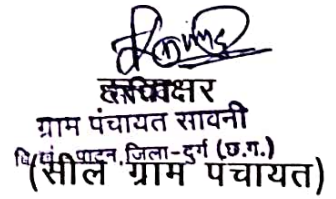 हस्ताक्षर
ग्राम पंचायत सावनी
वि.खं. पाटन, जिला-दुर्ग (छ.ग.)
(सील ग्राम पंचायत)